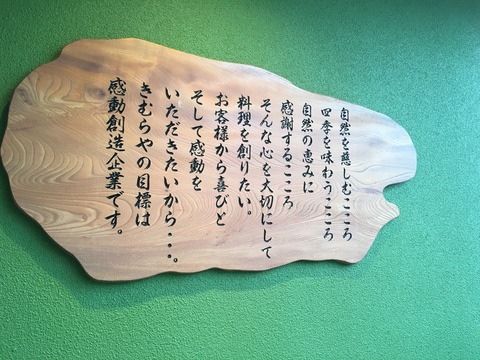 自然を慈しむこころ
四季を味わうこころ
自然の恵みに
感謝するこころ
そんな心を大切にして
料理を創りたい。
お客様から喜びと
そして感動を
いただきたいから・・・。
きむらやの目標は
感動創造企業です。